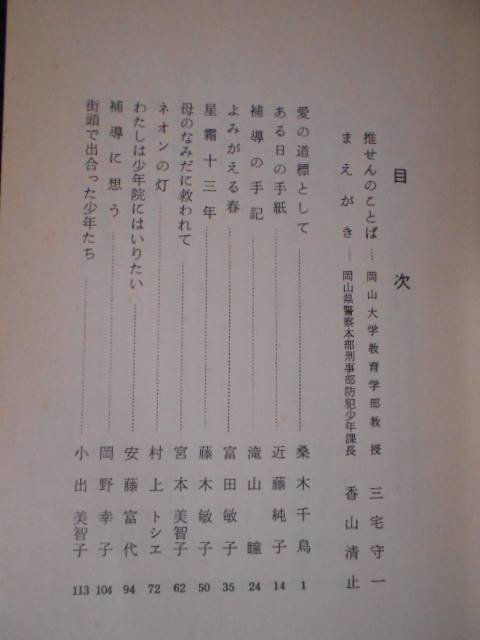 目次
推せんのことば…岡山大学教育学部教授 三宅守一
まえがき…岡山県警察本部刑事部防犯少年課長 香山清止
愛の道標として…桑木千鳥 1
ある日の手紙…近藤純子 14
補導の手記…滝山瞳 24
よみがえる春…富田敏子 35
星霜十三年…藤木敏子 50
母のなみだに救われて…宮本美智子 62
ネオンの灯…村上トシヱ 72
わたしは少年院にはいりたい…安藤富代 94
補導に想う…岡野幸子 104
街頭で出合った少年たち…小出美智子 113